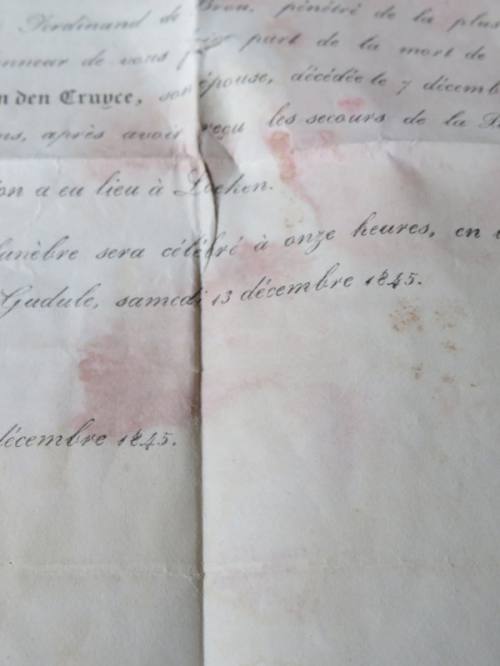 Ferdinand de Brou, pénétré de la plus
nneur de vous part de la mort de
n den Cruyce, son épouse, décédée le 7 décemb
ns, après avoir reçu les secours de la
on a eu lieu à
funèbre sera célébré à onze heures, en
Gudule, samedi 13 décembre 1845.
décembre 1845.